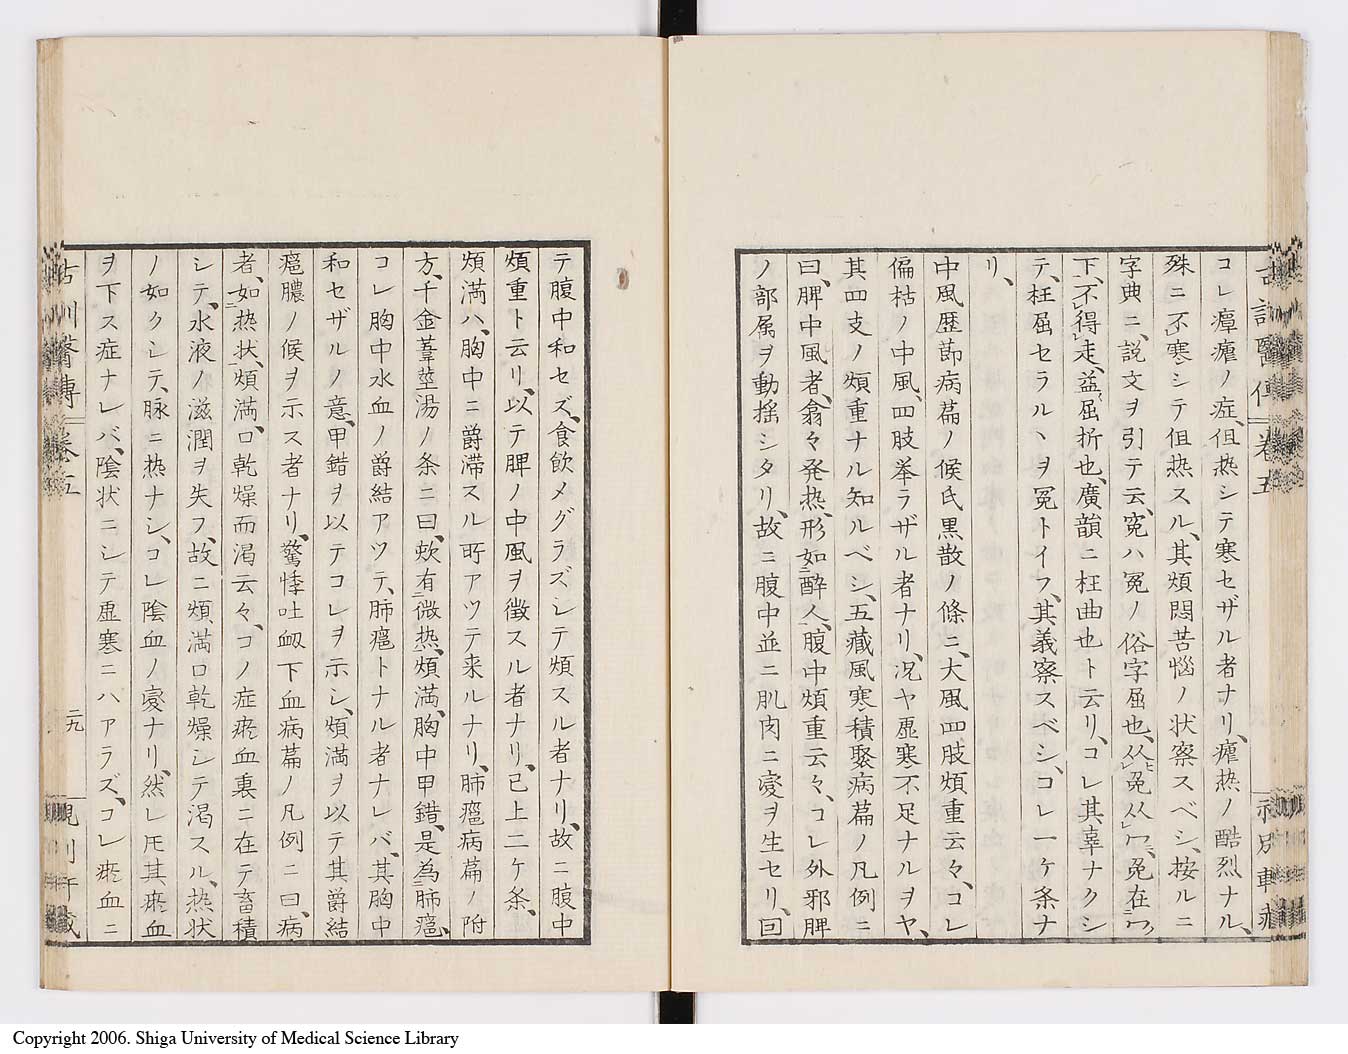 コレ瘴瘧ノ症、但热シテ寒セザル者ナリ、瘧热ノ酷烈ナル、
殊ニ不寒シテ但热スル、其煩悶苦惱ノ状察スベシ、按ルニ
字典ニ、説文ヲ引テ云、寃ハ冤ノ俗字屈也、从兔从冖、兔在冖
下、不得走、益屈折也、廣韻ニ枉曲也ト云リ、コレ其辜ナクシ
テ、枉屈セラルヽヲ冤トイフ、其義察スベシ、コレ一ケ条ナ
リ、
中風歴節病篇ノ候氏黒散ノ條ニ、大風四肢煩重云々、コレ
偏枯ノ中風、四肢挙ラザル者ナリ、况ヤ虚寒不足ナルヲヤ、
其四支ノ煩重ナル知ルベシ、五藏風寒積聚病篇ノ凡例ニ
曰、脾中風者、翕々発热、形如醉人、腹中煩重云々、コレ外邪脾
ノ部属ヲ動揺シタリ、故ニ腹中並ニ肌肉ニ変ヲ生セリ、回
テ腹中和セズ、食飲メグラズレテ煩スル者ナリ、故ニ腹中
煩重ト云リ、以テ脾ノ中風ヲ徴スル者ナリ、已上二ケ条、
煩満ハ、胸中ニ爵滞スル所アツテ来ルナリ、肺癰病篇ノ附
方、千金葦莖湯ノ条ニ曰、欬有微热、煩満、胸中甲錯、是為肺癰、
コレ胸中水血ノ爵結アツテ、肺癰トナル者ナレバ、其胸中
和セザルノ意、甲錯ヲ以テコレヲ示シ、煩満ヲ以テ其爵結
癰膿ノ候ヲ示ス者ナリ、驚悸吐衂下血病篇ノ凡例ニ曰、病
者、如热状、煩満、口乾燥而渇云々、コノ症瘀血裏ニ在テ畜積
シテ、水液ノ滋潤ヲ失フ、故ニ煩満口乾燥シテ渇スル、热状
ノ如クシテ、脉ニ热ナシ、コレ陰血ノ変ナリ、然レ𪜈其瘀血
ヲ下ス症ナレバ、陰状ニシテ虚寒ニハアラズ、コレ瘀血ニ
古訓醫傳 卷五
二九
Copyright 2006. Shiga University of Medical Science Library